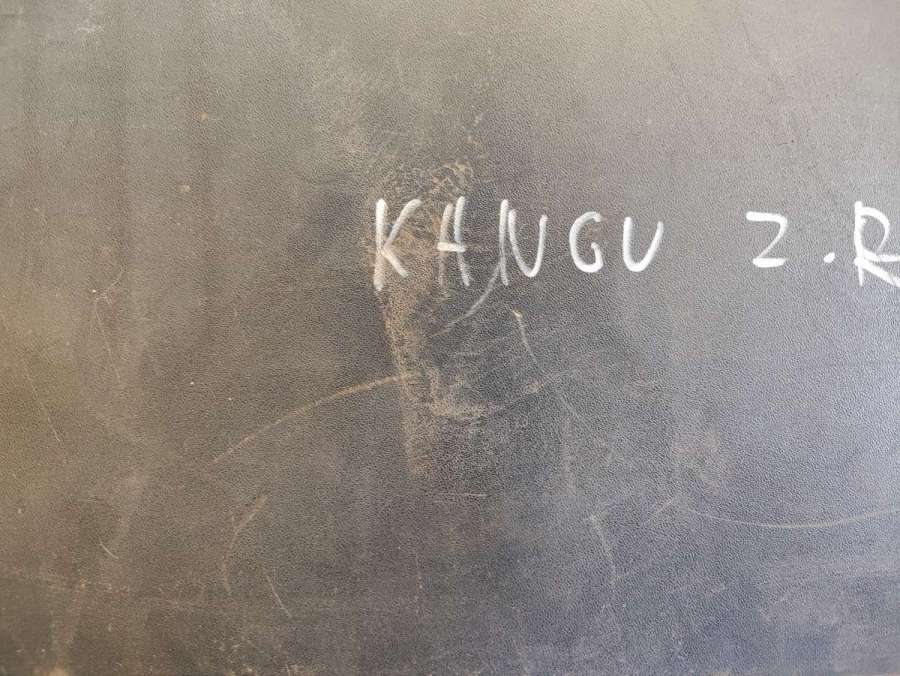 KANGU Z.R